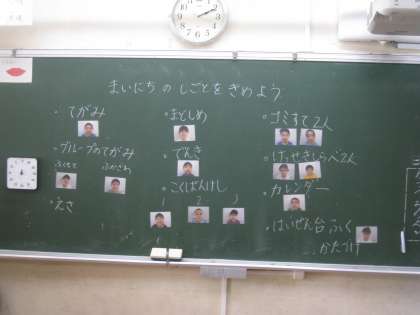 まいにちのしごとをきめよう
・てがみ
・グループのてがみ
・えさ
・まどしめ
・でんき
・こくばんけし
1 2 3
・ゴミすて2人
・けっせきしらべ2人
・カレンダー
・はいぜん台ふく
かたづけ